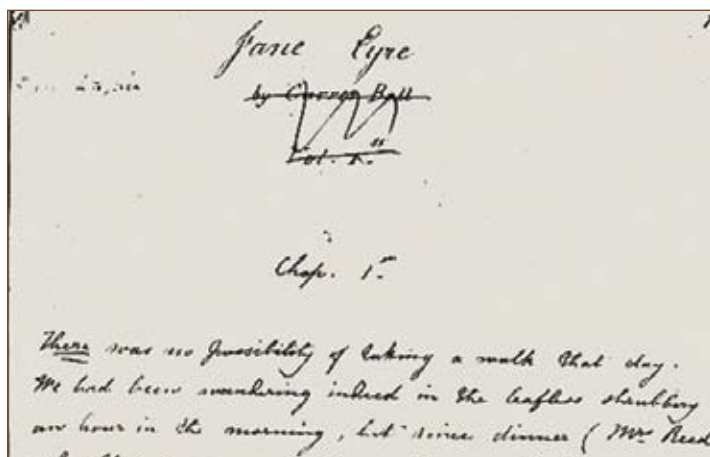 Jane Eyre
by Currer Bell
Vol. 1.st
Chap. 1.st
There was no possibility of taking a walk that day.
We had been wandering indeed in the leafless shrubbery
an hour in the morning, but since dinner (Mrs Reed